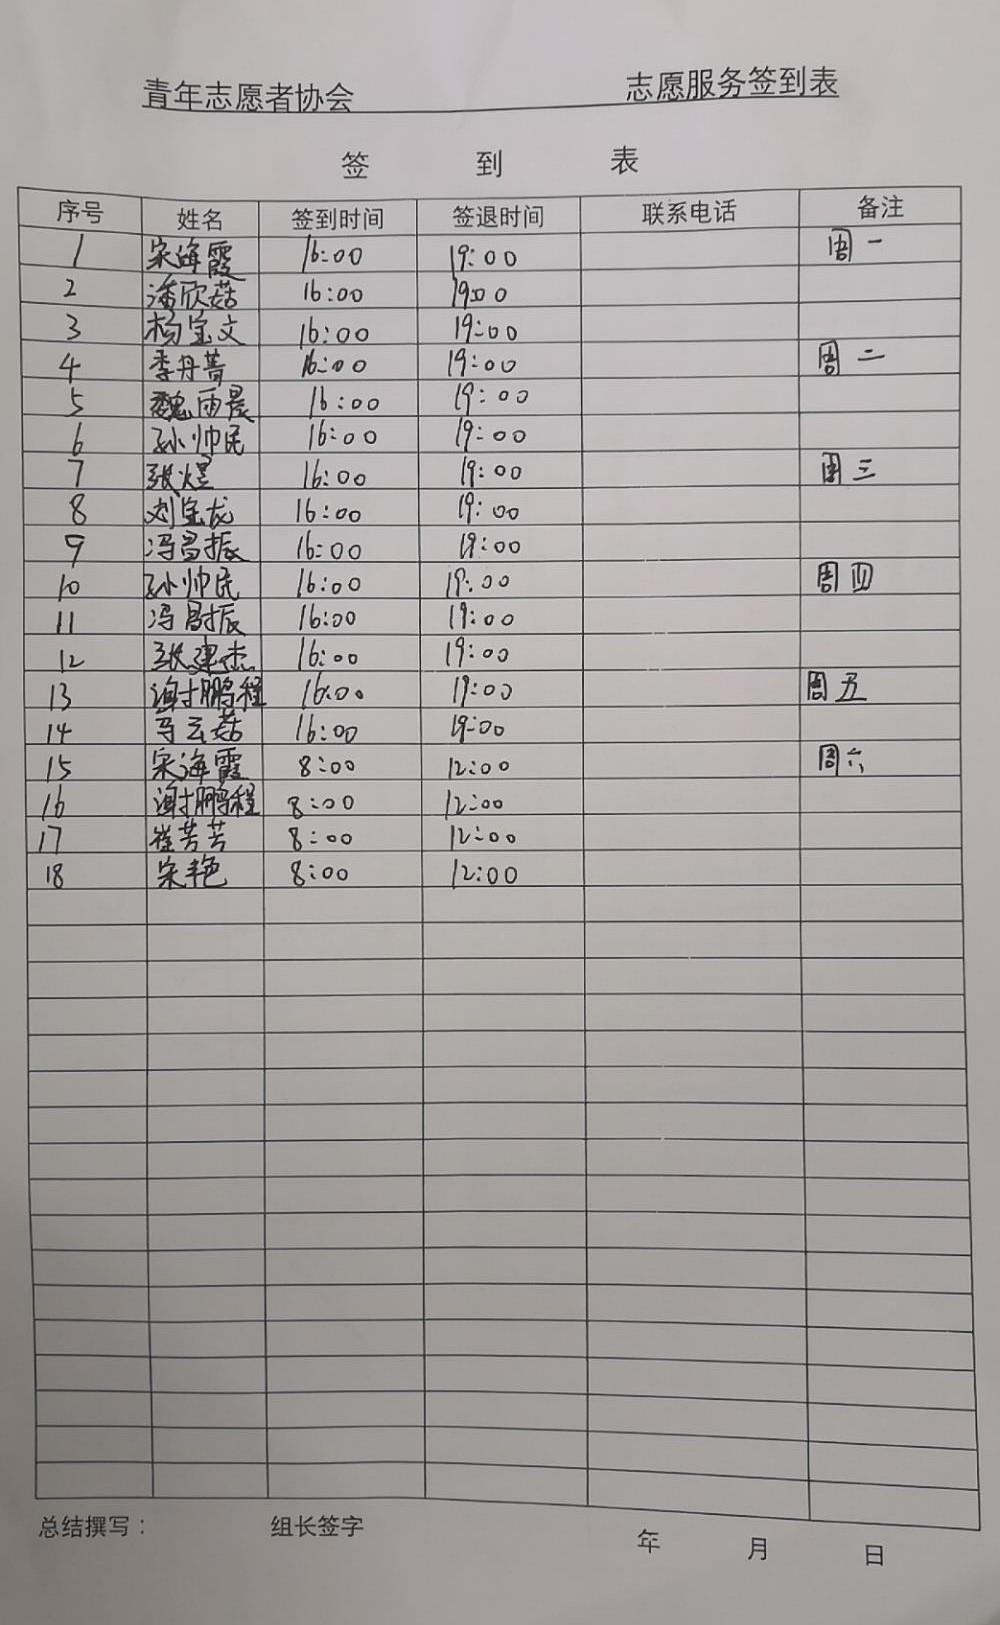 青年志愿者协会 志愿服务签到表
签 到 表
序号 姓名 签到时间 签退时间 联系电话 备注
1 宋海霞 16:00 19:00 周一
2 潘欣茹 16:00 19:00
3 杨宝文 16:00 19:00
4 李丹菁 16:00 19:00 周二
5 魏雨晨 16:00 19:00
6 孙帅民 16:00 19:00
7 张煜 16:00 19:00 周三
8 刘宝龙 16:00 19:00
9 冯昌振 16:00 19:00
10 孙帅民 16:00 19:00 周四
11 冯昌振 16:00 19:00
12 张建杰 16:00 19:00
13 谢鹏程 16:00 19:00 周五
14 马云茹 16:00 19:00
15 宋海霞 8:00 12:00 周六
16 谢鹏程 8:00 12:00
17 崔芳芳 8:00 12:00
18 宋艳 8:00 12:00
总结撰写： 组长签字 年 月 日